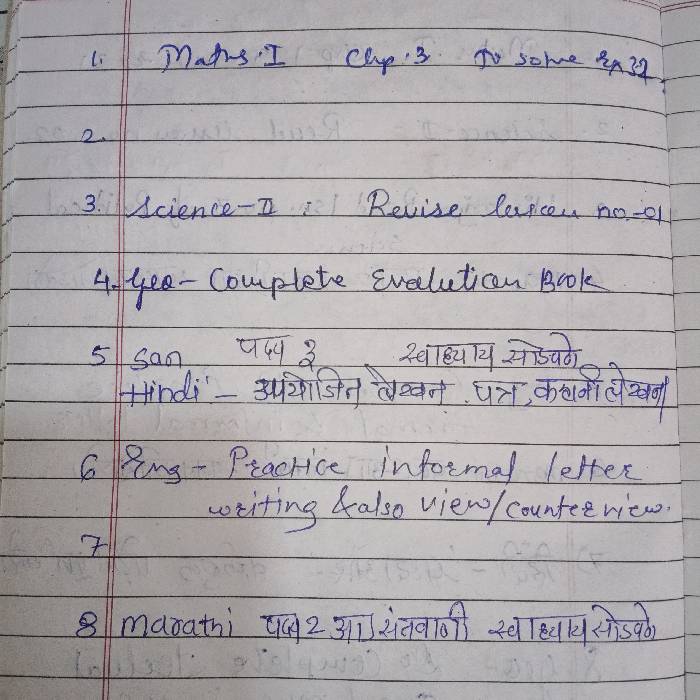 1. Maths-I Chp.3 To solve Ex 32.
2.
3. Science-II : Revise lesson no.-01
4. Geo- Complete Evalution Book
5 San पद्य 3 स्वाध्याय सोडवणे
Hindi - उपयोजित लेखन पत्र, कहानी लेखन
6 Eng- Practice informal letter
writing & also view/counterview.
7
8 Marathi पद्य 2 आ) संतवाणी स्वाध्याय सोडवणे